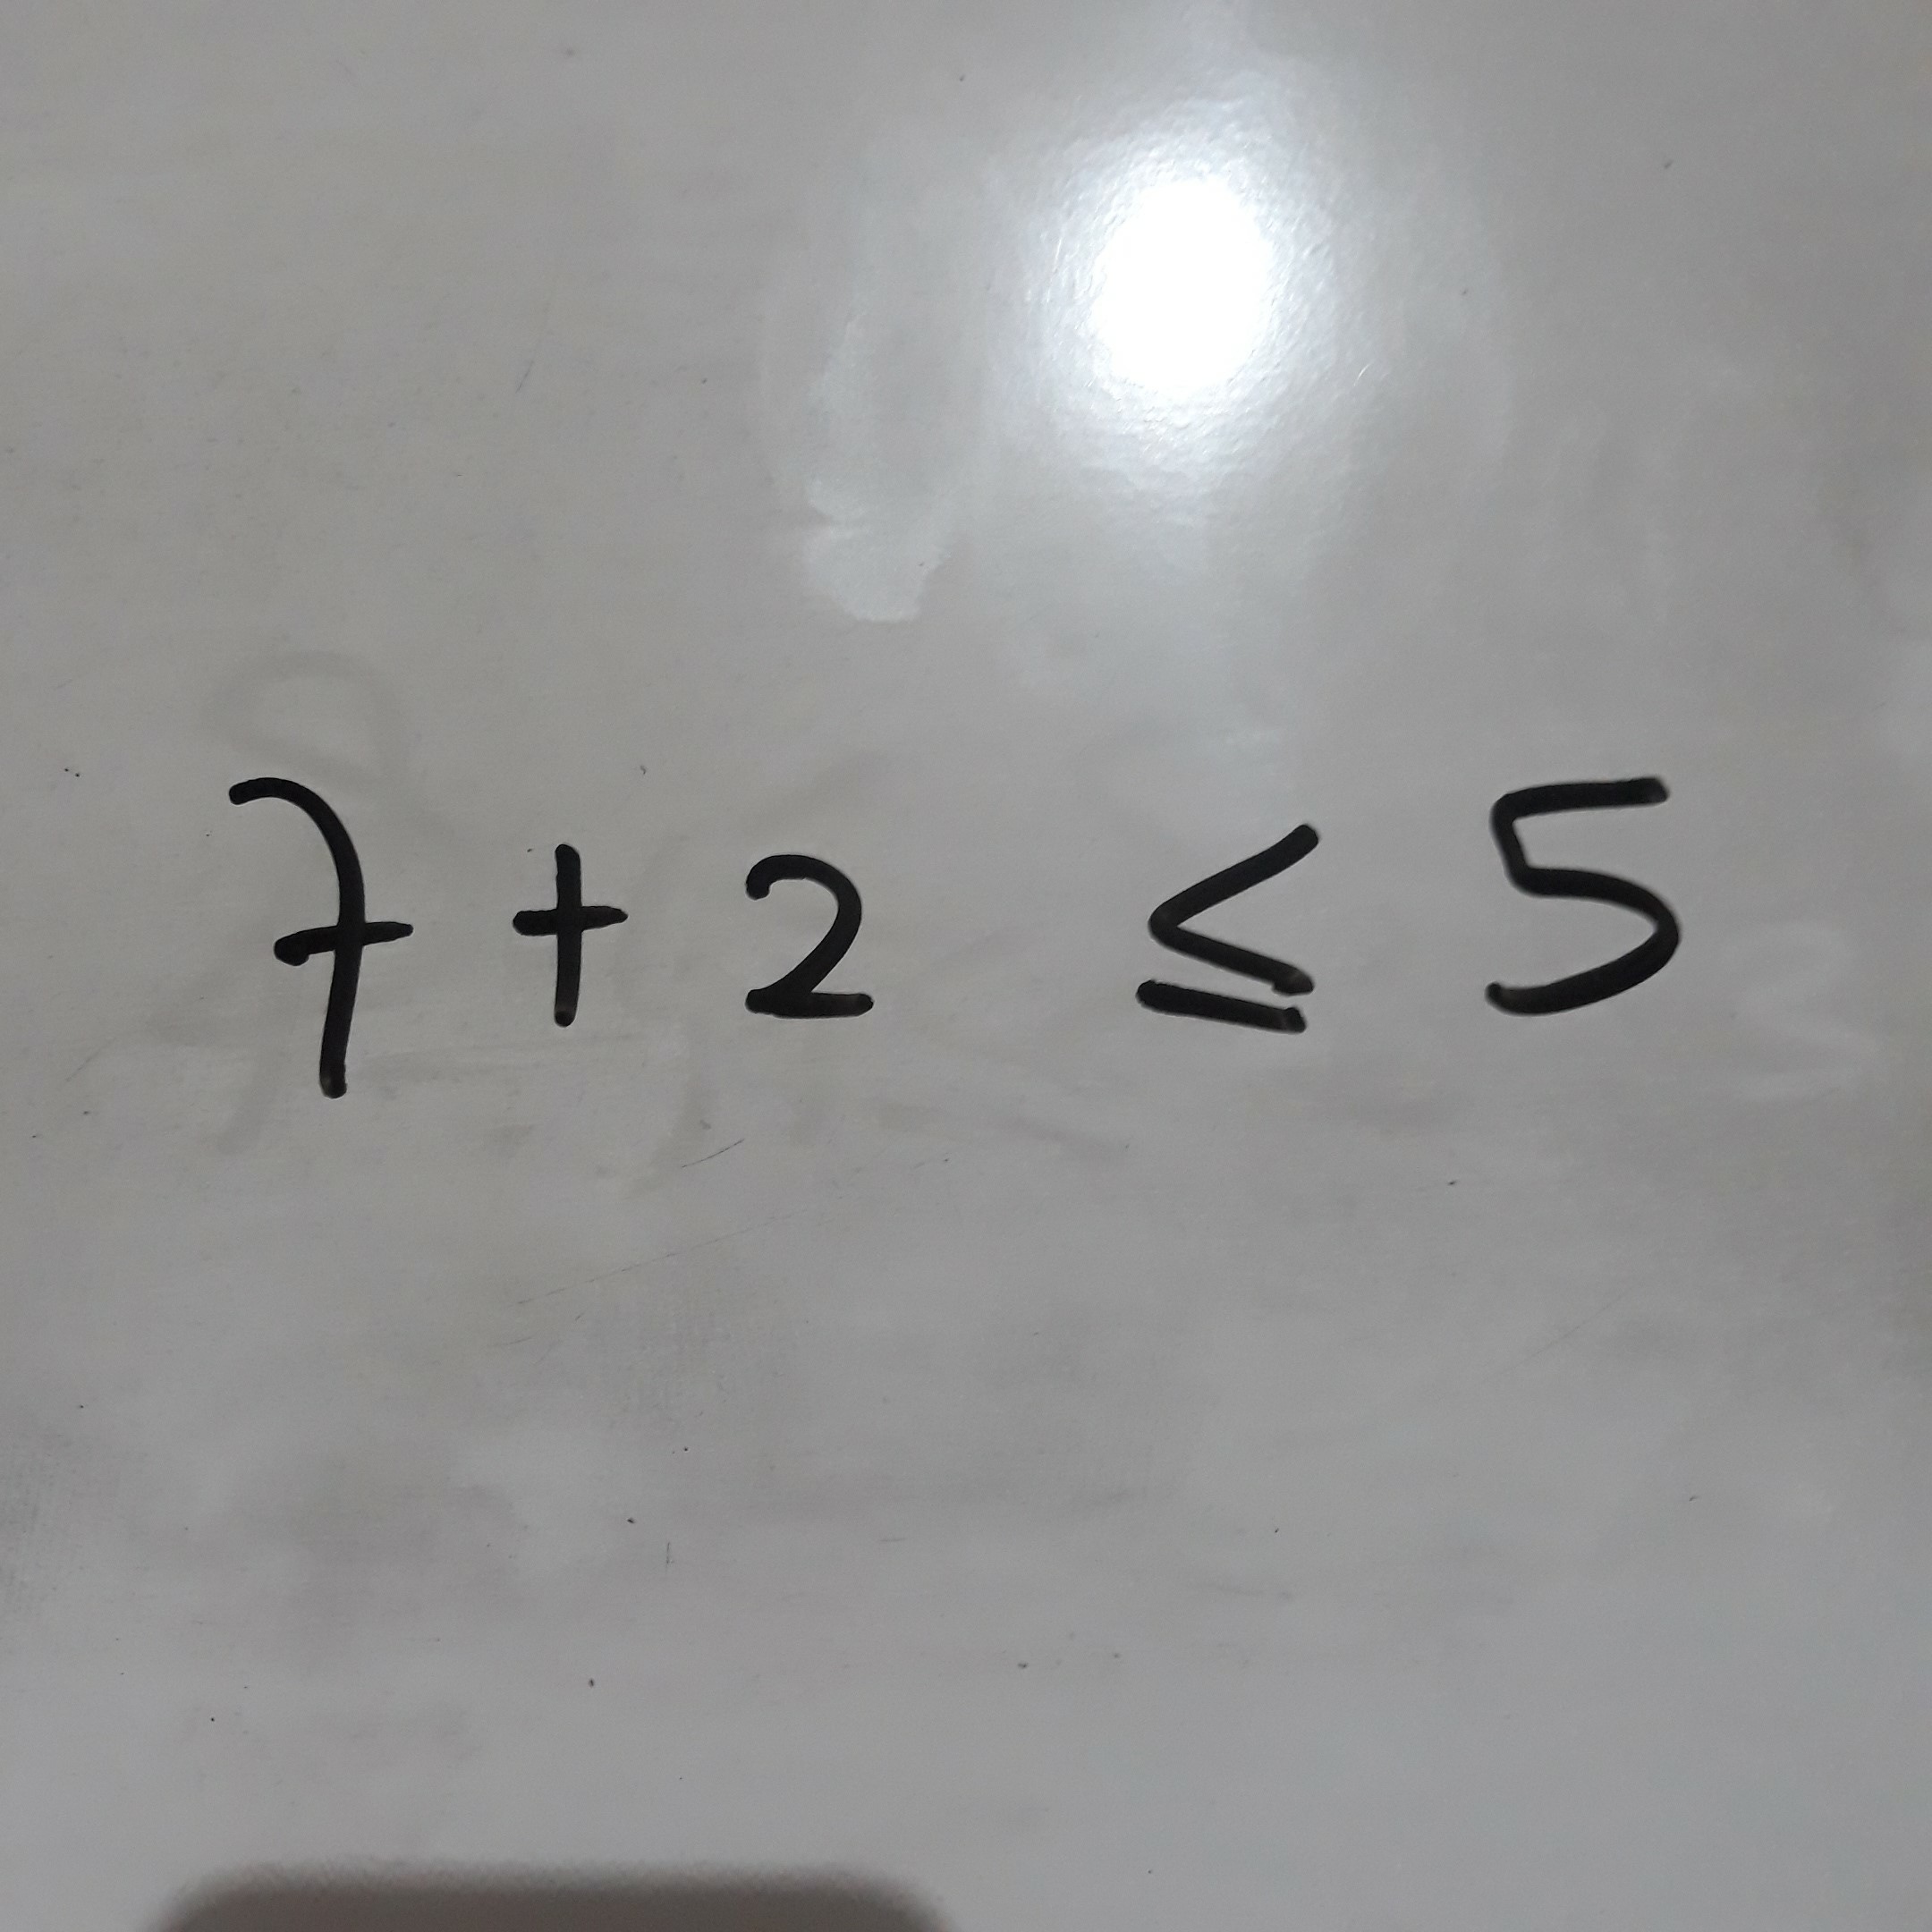 7 + 2 ≤ 5